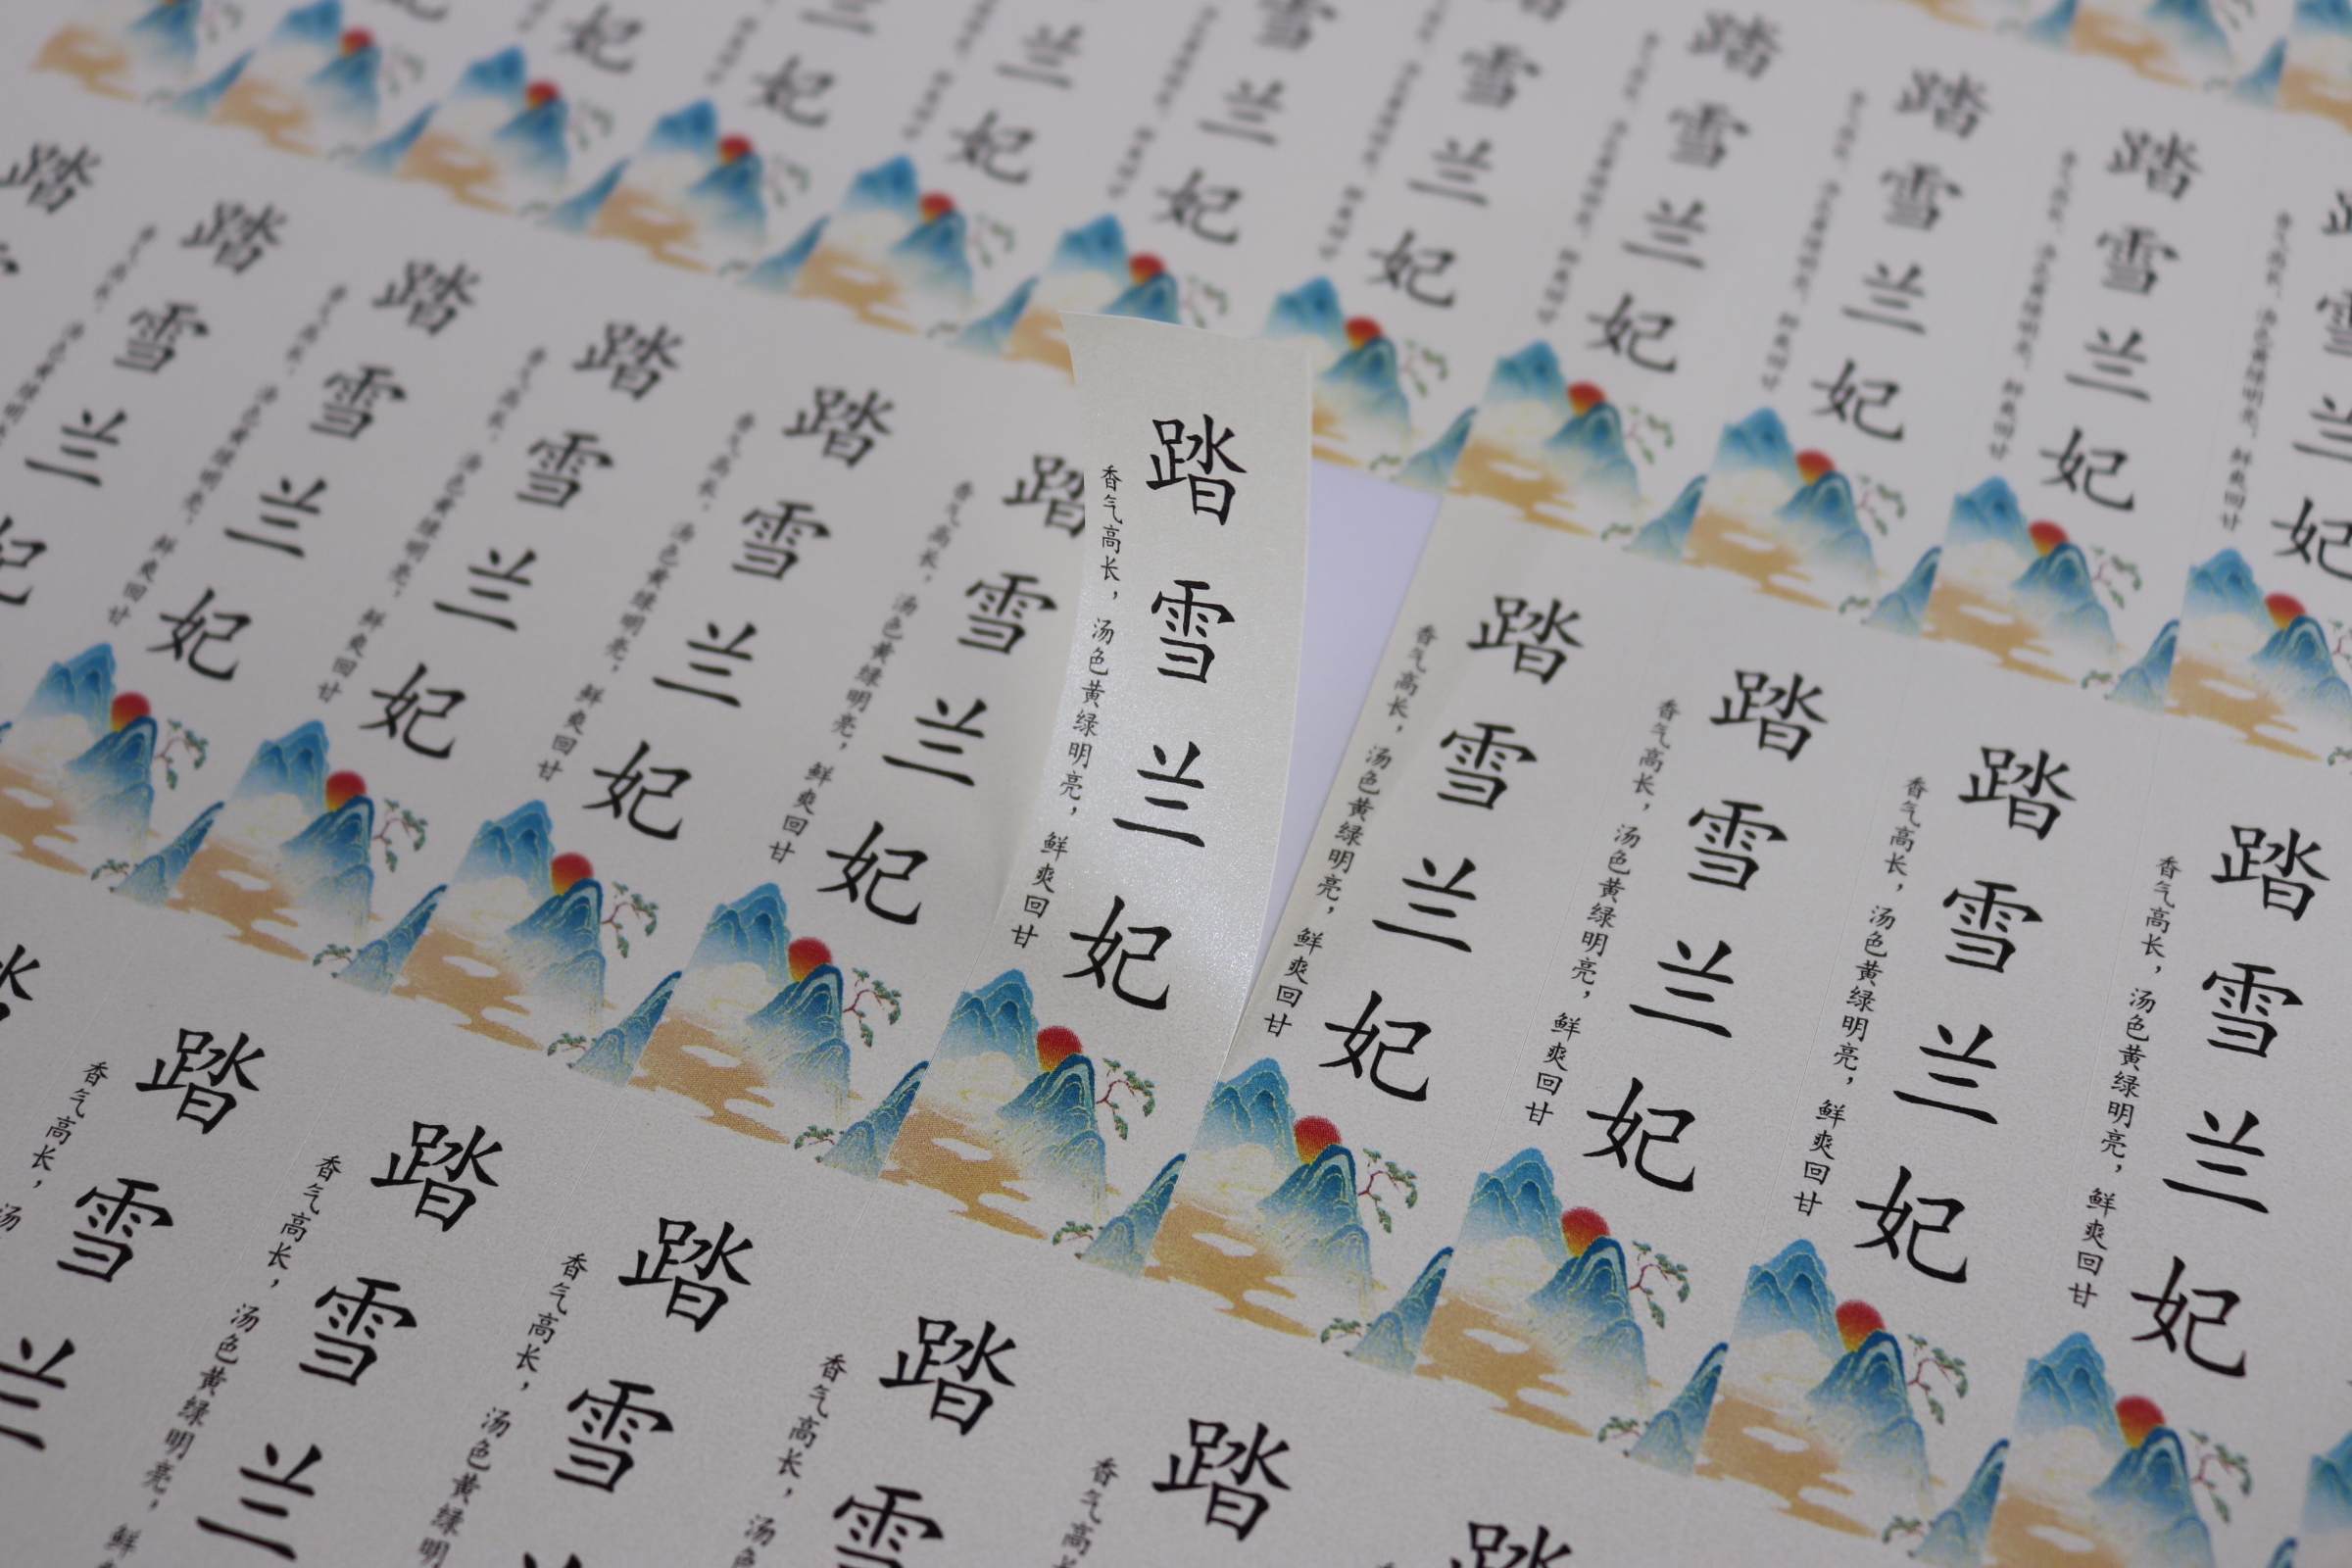 踏雪兰妃
香气高长，汤色黄绿明亮，鲜爽回甘